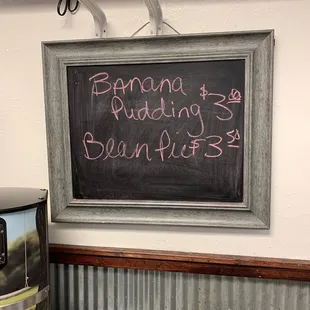 Banana
Pudding $3.00
Bean Pie $3.50